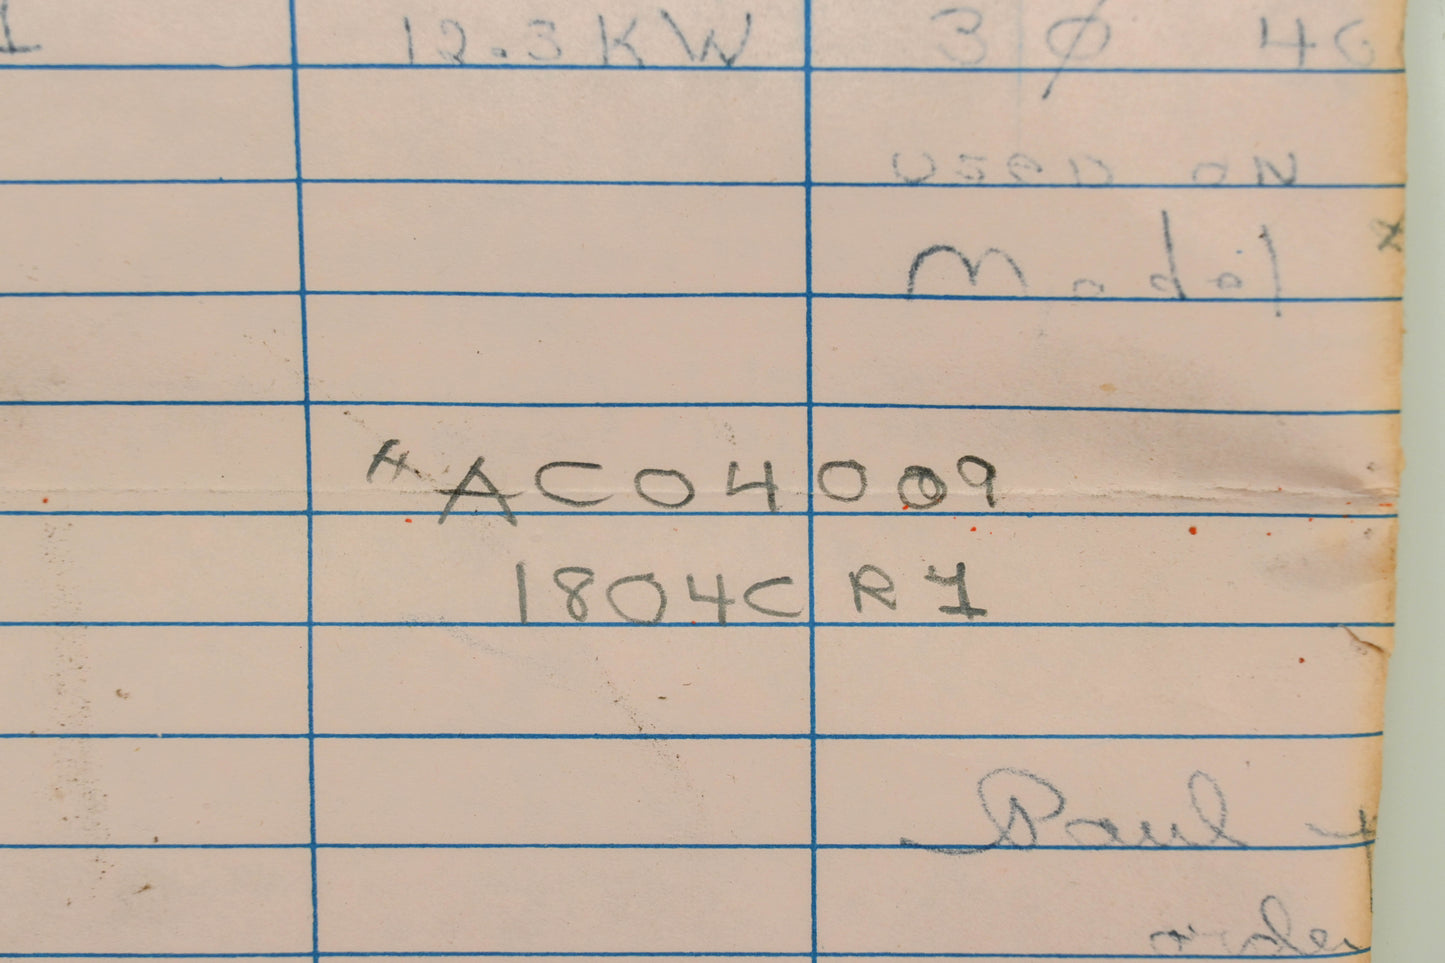 1 12.3 KW 3 Ø 40
USED ON
Model
# AC04009
1804C R1
Paul